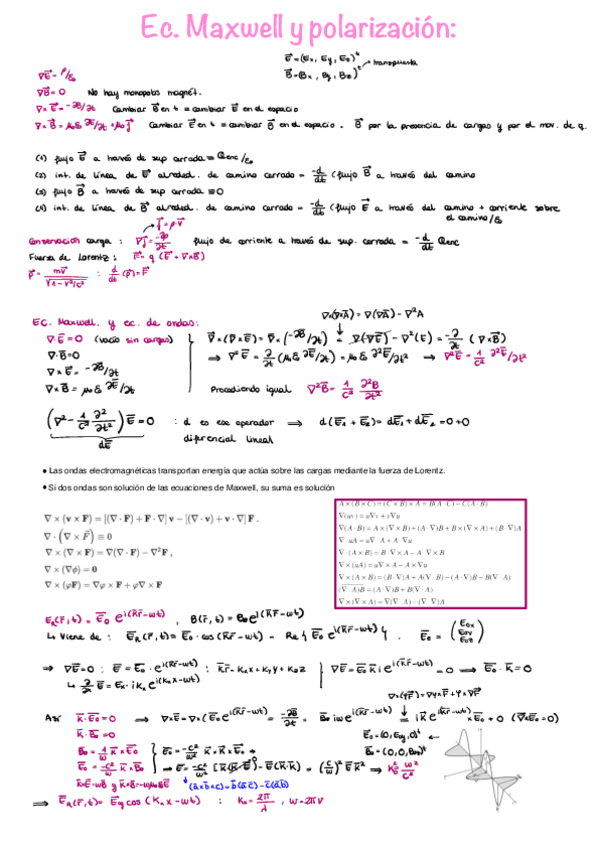 Ec. Maxwell y polarización:
E⃗ = (Ex, Ey, Ez)ᵗ → transpuesta
B⃗ = (Bx, By, Bz)ᵗ
∇E⃗ = ρ/ε₀
∇B⃗ = 0 No hay monopolos magnét.
∇×E⃗ = -∂B⃗/∂t Cambiar B⃗ en t = cambiar E⃗ en el espacio
∇×B⃗ = μ₀ε₀ ∂E⃗/∂t + μ₀j⃗ Cambiar E⃗ en t = cambiar B⃗ en el espacio. B⃗ por la presencia de cargas y por el mov. de q.
(1) flujo E⃗ a través de sup cerrada = Qenc/ε₀
(2) int. de línea de E⃗ alreded. de camino cerrado = -d/dt (flujo B⃗ a través del camino
(3) flujo B⃗ a través de sup cerrada = 0
(4) int. de línea de B⃗ alreded. de camino cerrado = -d/dt (flujo E⃗ a través del camino + corriente sobre el camino/ε₀
j⃗ = ρv⃗
Conservación carga : ∇j⃗ = -∂ρ/∂t flujo de corriente a través de sup. cerrada = -d/dt Qenc
Fuerza de Lorentz : F⃗ = q (E⃗ + v×B⃗)
p⃗ = mv⃗/√(1-v²/c²) : d/dt (p⃗) = F⃗
∇×(∇×A⃗) = ∇(∇A⃗) - ∇²A
EC. Maxwell, y ec. de ondas:
∇·E⃗ = 0 (vacío sin cargas) ∇×(∇×E⃗) = ∇×(-∂B⃗/∂t) = ∇(∇E⃗) - ∇²(E) = -∂/∂t (∇×B⃗)
∇·B⃗ = 0 ⇒ ∇²E⃗ = ∂/∂t (μ₀ε₀ ∂E⃗/∂t) = μ₀ε₀ ∂²E⃗/∂t² → ∇²E⃗ = 1/c² ∂²E⃗/∂t²
∇×E⃗ = -∂B⃗/∂t
∇×B⃗ = μ₀ε₀ ∂E⃗/∂t Procediendo igual ∇²B⃗ = 1/c² ∂²B/∂t²
(∇² - 1/c² ∂²/∂t²) E⃗ = 0 : d es ese operador ⇒ d(E₁ + E₂) = dE₁ + dE₂ = 0+0
dE diferencial lineal
• Las ondas electromagnéticas transportan energía que actúa sobre las cargas mediante la fuerza de Lorentz.
• Si dos ondas son solución de las ecuaciones de Maxwell, su suma es solución
∇ × (v × F) = [(∇ · F) + F · ∇] v − [(∇ · v) + v · ∇] F .
∇ · (∇ × F⃗) ≡ 0
∇ × (∇ × F) = ∇(∇ · F) − ∇²F ,
∇ × (∇φ) = 0
∇ × (φF) = ∇φ × F + φ∇ × F
A × (B × C) = (C × B) × A = B(A · C) − C(A · B)
∇(uv) = u∇v + v∇u
∇(A · B) = A × (∇ × B) + (A · ∇)B + B × (∇ × A) + (B · ∇)A
∇ · uA = u∇ · A + A · ∇u
∇ · (A × B) = B · ∇ × A − A · ∇ × B
∇ × (uA) = u∇ × A − A × ∇u
∇ × (A × B) = (B · ∇)A + A(∇ · B) − (A · ∇)B − B(∇ · A)
(∇ · A)B = (A · ∇)B + B(∇ · A)
∇ × (∇ × A) = ∇(∇ · A) − (∇ · ∇)A
E_R(r⃗,t) = E₀ e^{i(k⃗r⃗-wt)} , B(r⃗,t) = B₀e^{i(k⃗r⃗-wt)}
↳ Viene de : E_R(r⃗,t) = E₀ · cos(k⃗r⃗-wt) = Re{E₀ e^{i(k⃗r⃗-wt)}} . E₀ = (E₀x E₀y E₀z)
⇒ ∇E⃗ = 0 : E⃗ = E₀ · e^{i(k⃗r⃗-wt)} : k⃗r⃗ = kₓx + k_y y + k_z z ∇E⃗ = E₀ k⃗ i e^{i(k⃗r⃗-wt)} = 0 ⇒ E₀ · k⃗ = 0
↳ ∂/∂x E⃗ = Ex · i kx e^{i(kₓx-wt)}
∇×(φF⃗) = ∇φ×F + φ×∇F
Así k⃗·E₀ = 0 ⇒ ∇×E⃗ = ∇×(E₀e^{i(k⃗r⃗-wt)}) = -∂B⃗/∂t = B₀iwe^{i(k⃗r⃗-wt)} = ik⃗e^{i(k⃗r⃗-wt)}×E₀ + 0 (∇×E₀=0)
k⃗·B₀ = 0 E₀ = (0, E₀y, 0)ᵗ
B₀ = 1/w k⃗×E₀ E₀ = -c²/w² k⃗×k⃗×E₀ B₀ = (0,0,B₀z)ᵗ
E₀ = -c²/w k⃗×B₀ E₀ = -c²/w² [k⃗(k⃗·E⃗) - E⃗(k⃗·k⃗)] = (c/w)² E⃗k⃗² ⇒ k₀² = w²/c²
(a×b×c) = b(a·c) - c(a·b)
⇒ E_R(r⃗,t) = E₀y cos(kₓx - wt) : k₀ = 2π/λ , w = 2πν